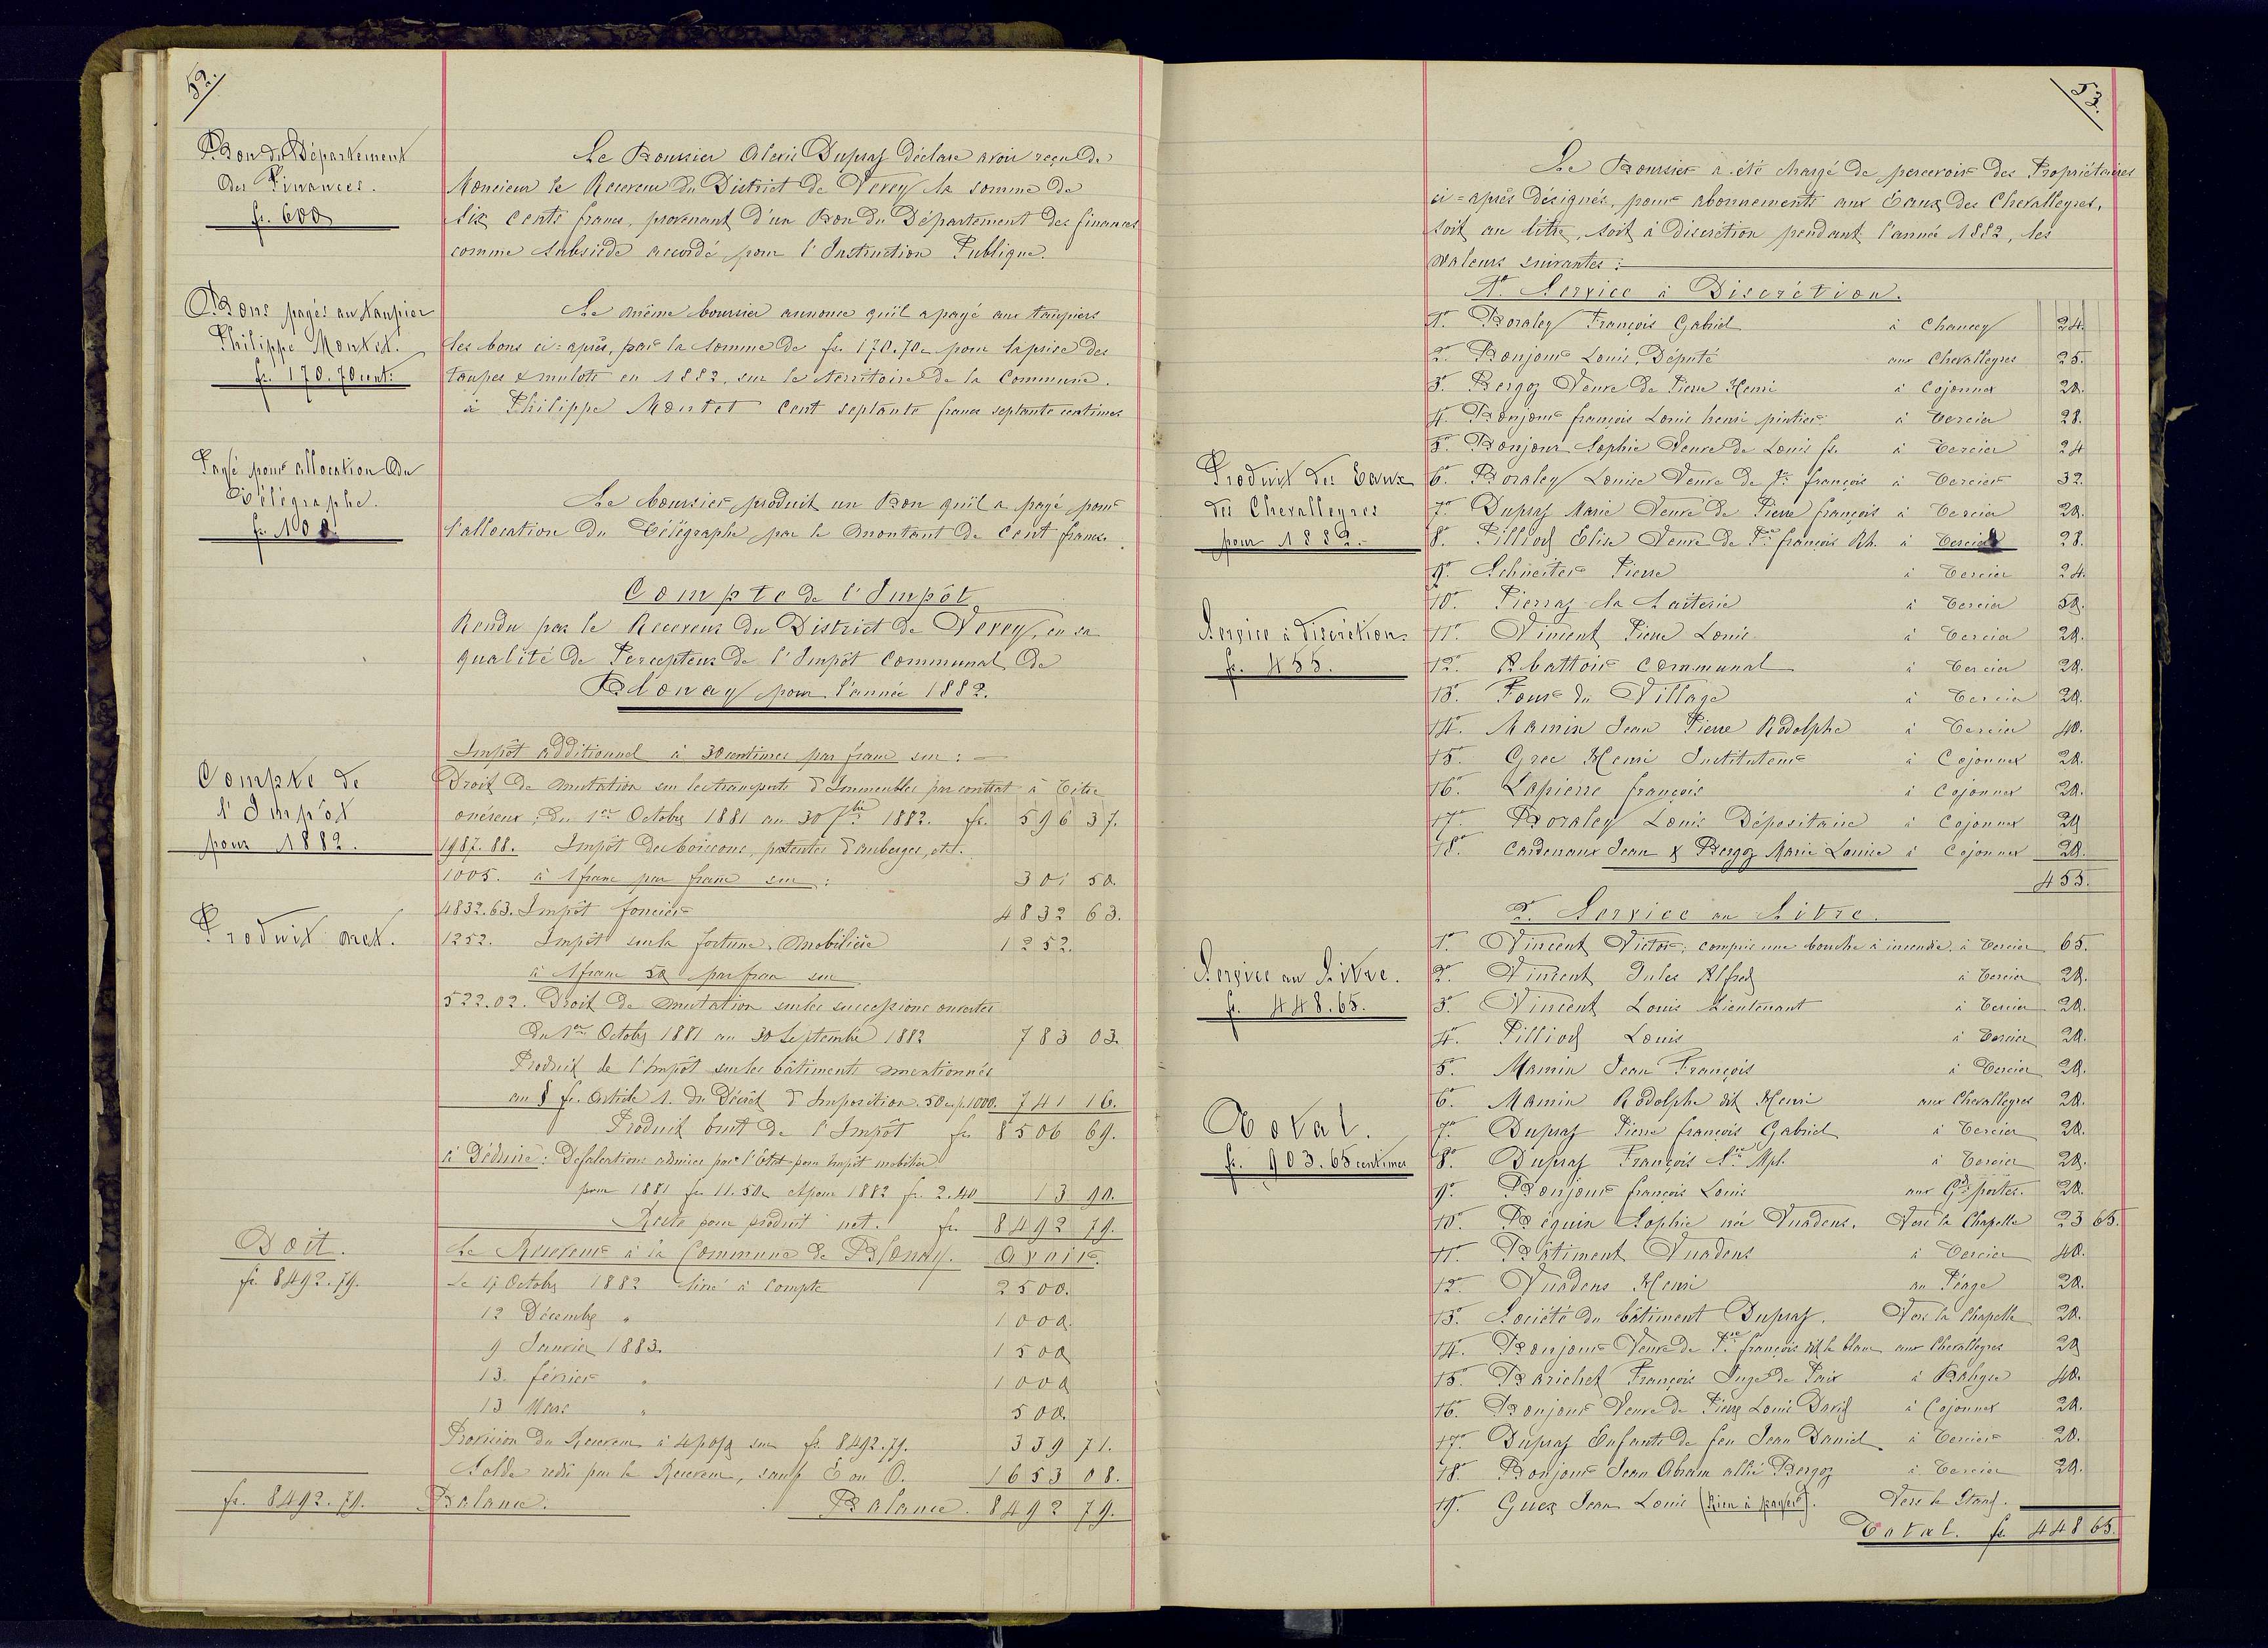 52.
Bon du Département
des Finances.
fr. 600
Le Boursier Alexis Dupraz déclare avoir reçu de
Monsieur le Receveur du District de Vevey la somme de
Six cents francs, provenant d'un Bon du Département des finances
comme subside accordé pour l'Instruction Publique.
Bons payés au taupier
Philippe Montet.
fr. 170.70 cent:
Le même boursier annonce qu'il a payé aux taupiers
les bons ci=après, par la somme de fr. 170.70c pour la prise des
taupes & mulots en 1882, sur le territoire de la Commune.
à Philippe Montet cent septante francs septante centimes
Payé pour allocation du
Télégraphe.
fr. 100.
Le boursier produit un Bon qu'il a payé pour
l'allocation du Télégraphe par le montant de Cent francs.
Compte de l'Impôt
Rendu par le Receveur du District de Vevey, en sa
qualité de Percepteur de l'Impôt Communal de
Blonay pour l'année 1882.
Compte de
l'Impôt
pour 1882.
Impôt additionnel à 30 centimes par franc sur:
Droit de mutation sur les transports d'Immeubles par contrat à Titre
onéreux, du 1er Octobre 1881 au 30 7bre 1882. fr. 596 37.
1987.88. Impôt des boissons, patentes d'auberges, etc.
1005. à 1 franc par franc sur: 301 50.
4832.63. Impôt foncier 4832 63.
Produit net.
1252. Impôt sur la fortune mobilière 1252.
à 1 franc 50 par franc sur
522.02. Droit de mutation sur les successions ouvertes
du 1er Octobre 1881 au 30 Septembre 1882 783 03.
Produit de l'Impôt sur les bâtiments mentionnés
au § fr. Article 1. du Décrêt d'Imposition. 50 c p. 1000. 741 16.
Produit brut de l'Impôt fr. 8506 69.
à Déduire: Défalcations admises par l'Etat pour Impôt mobilier
pour 1881 fr. 11.50c et pour 1882 fr. 2.40 13 90.
Reste pour produit net. fr. 8492 79.
Doit.
fr. 8492.79.
Le Receveur à la Commune de Blonay. Avoir.
Le 9 Octobre 1882 livré à compte 2500.
12 Décembre " 1000.
9 Janvier 1883. 1500
13 février " 1000
13 Mars " 500.
Provision du Receveur à 4 p% sur fr. 8492.79. 339 71.
Solde redû par le Receveur, sauf E ou O. 1653 08.
fr. 8492.79. Balance. Balance. 8492 79.
53.
Le Boursier a été chargé de percevoir des Propriétaires
ci=après désignés, pour abonnements aux Eaux des Chevalleyres,
soit au litre, soit à discrétion pendant l'année 1882, les
valeurs suivantes:
Produit des Eaux
des Chevalleyres
pour 1882.
Service à Discrétion.
fr. 455.
1o. Service à Discrétion.
1o. Boraley François Gabriel à Chaucey 24.
2o. Bonjour Louis, Député aux Chevalleyres 25.
3o. Bergoz Veuve de Pierre Henri à Cojonnex 20.
4o. Bonjour françois Louis henri pintier à Tercier 28.
5o. Bonjour Sophie Veuve de Louis fs. à Tercier 24
6o. Boraley Louise Veuve de Jn françois à Tercier 32.
7o. Dupraz Marie Veuve de Pierre françois à Tercier 20.
8o. Pilliod Elise Veuve de Pre françois Rh. à Tercier 28.
9o. Schneiter Pierre à Tercier 24.
10o. Pierraz la Laiterie à Tercier 50.
11o. Vincent Pierre Louis à Tercier 20.
12o. Abattoir communal à Tercier 20.
13o. Four du Village à Tercier 20.
14o. Mamin Jean Pierre Rodolphe à Tercier 40.
15o. Grec Henri Instituteur à Cojonnex 20.
16o. Lapierre françois à Cojonnex 20.
17o. Boraley Louis Dépositaire à Cojonnex 20
18o. Cardenaux Jean & Bergoz Marie Louise à Cojonnex 20.
455.
Service au Litre.
fr. 448.65.
Total.
fr. 903.65 centimes
2o. Service au Litre.
1o. Vincent Victor; compris une bouche à incendie à Tercier 65.
2o. Vincent Jules Alfred à Tercier 20.
3o. Vincent Louis Lieutenant à Tercier 20.
4o. Pilliod Louis à Tercier 20.
5o. Mamin Jean François à Tercier 20.
6o. Mamin Rodolphe dit Henri aux Chevalleyres 20.
7o. Dupraz Pierre françois Gabriel à Tercier 20.
8o. Dupraz François à Tercier 20.
9o. Bonjour françois Louis aux Gdes portes. 20.
10o. Béguin Sophie née Vuadens. Vers la Chapelle 23 65.
11o. Bâtiment Vuadens à Tercier 40.
12o. Vuadens Henri au Péage 20.
13o. Société du bâtiment Dupraz. Vers la Chapelle 20.
14o. Bonjour Veuve de Pre françois dit le blanc aux Chevalleyres 20
15o. Barichet François Juge de Paix à Bahyse 40.
16o. Bonjour Veuve de Pierre Louis David à Cojonnex 20.
17o. Dupraz Enfants de feu Jean Daniel à Tercier 20.
18o. Bonjour Jean Abram allié Bergoz à Tercier 20.
19o. Guex Jean Louis (Rien à payer). Vers le Stand.
Total. fr. 448 65.